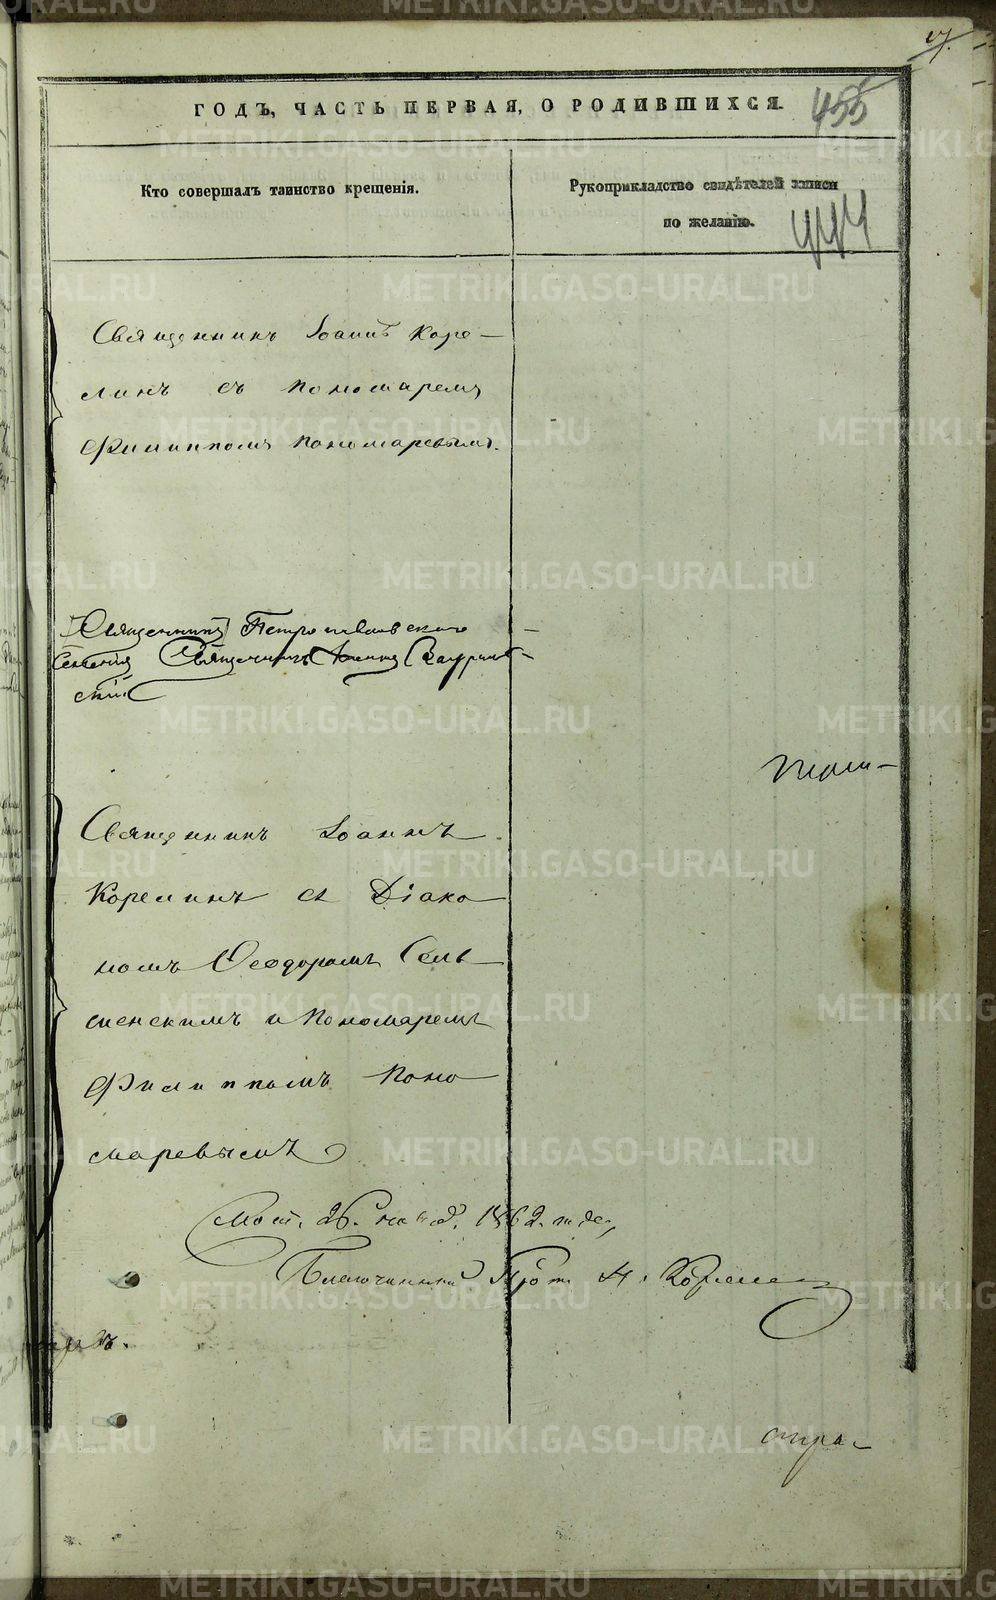 17.
ГОДЪ, ЧАСТЬ ПЕРВАЯ, О РОДИВШИХСЯ.
455
Кто совершалъ таинство крещенія.
Рукоприкладство свидѣтелей записи
по желанію.
444
Священникъ Іоаннъ Коре-
линъ съ Пономаремъ
Филиппомъ Пономаревымъ.
Священникъ Петропавловскаго
Священникъ
скій
Священникъ Іоаннъ
Корелинъ съ Діако
номъ Ѳеодоромъ Сель
менскимъ и Пономаремъ
Филиппомъ Поно
маревымъ
26. 1862. года,
Благочинный Прот. Н. Корелинъ
METRIKI.GASO-URAL.RU